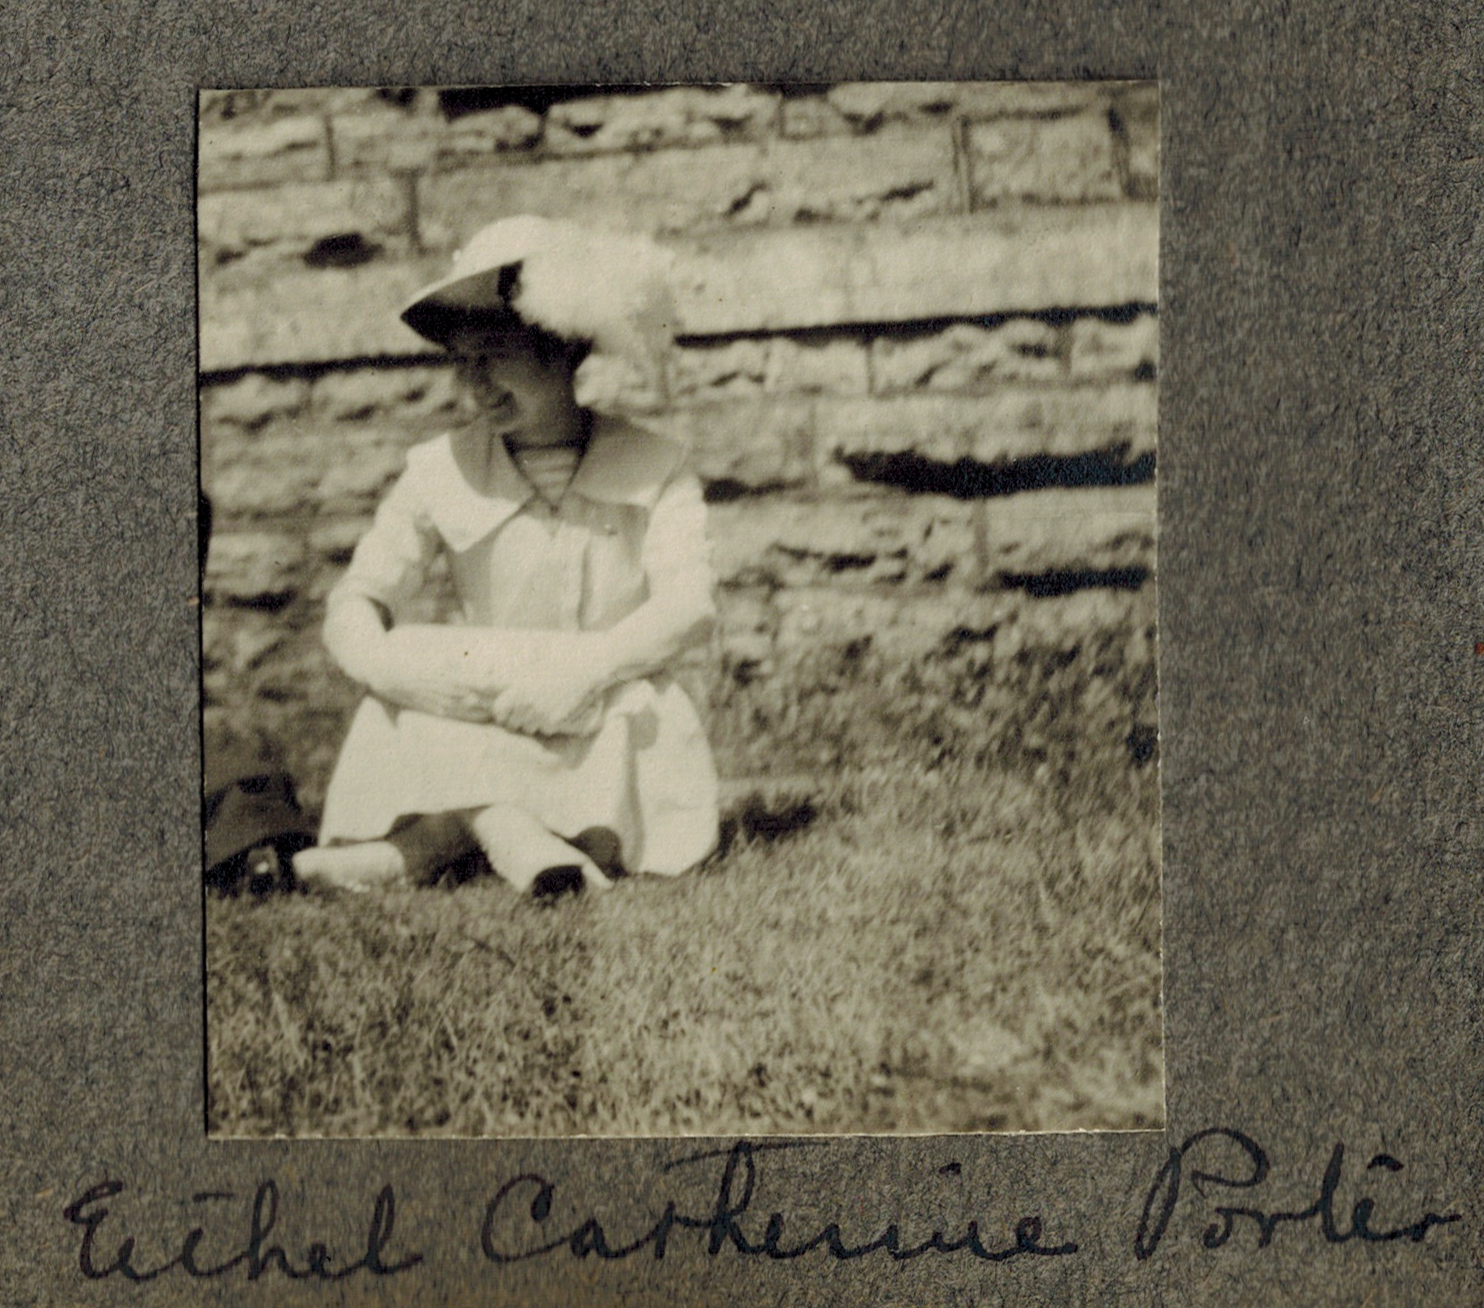 Ethel Catherine Porter